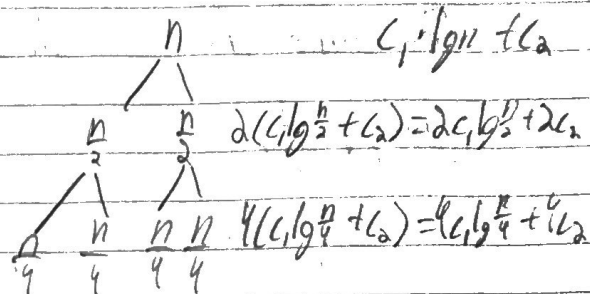 n c₁·lgn + c₂
n/2 n/2 2(c₁lg n/2 + c₂) = 2c₁lg n/2 + 2c₂
n/4 n/4 n/4 n/4 4(c₁lg n/4 + c₂) = 4c₁lg n/4 + 4c₂